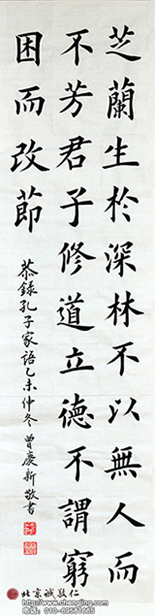 芝蘭生於深林不以無人而
不芳君子修道立德不謂窮
困而改節
恭錄孔子家語乙未仲冬曾慶新敬書
北京诚敬仁
http://www.chengjing.com
电话：010-69561665